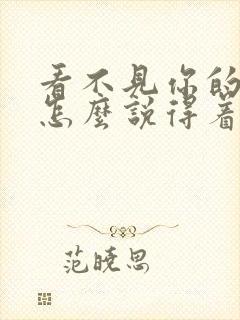 看不見你的
怎麼說得着
范曉思